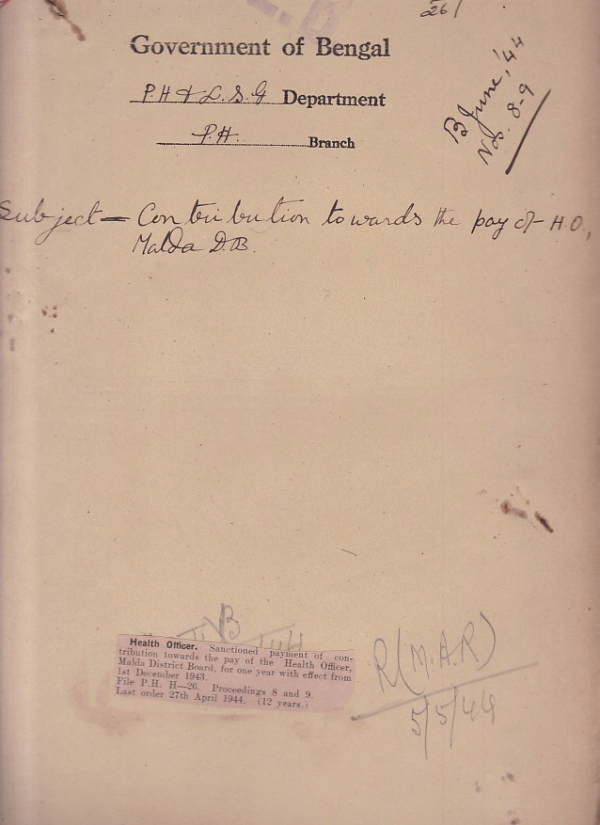 26/
Government of Bengal
P.H & L.S.G Department
P.H. Branch
B June, '44
Nos. 8-9
Subject — Contribution towards the pay of H.O.,
Malda D.B.
B
Health Officer. Sanctioned payment of con-
tribution towards the pay of the Health Officer,
Malda District Board, for one year with effect from
1st December 1943.
File P.H. H—26. Proceedings 8 and 9.
Last order 27th April 1944. (12 years.)
R (M.A.R)
5/5/44